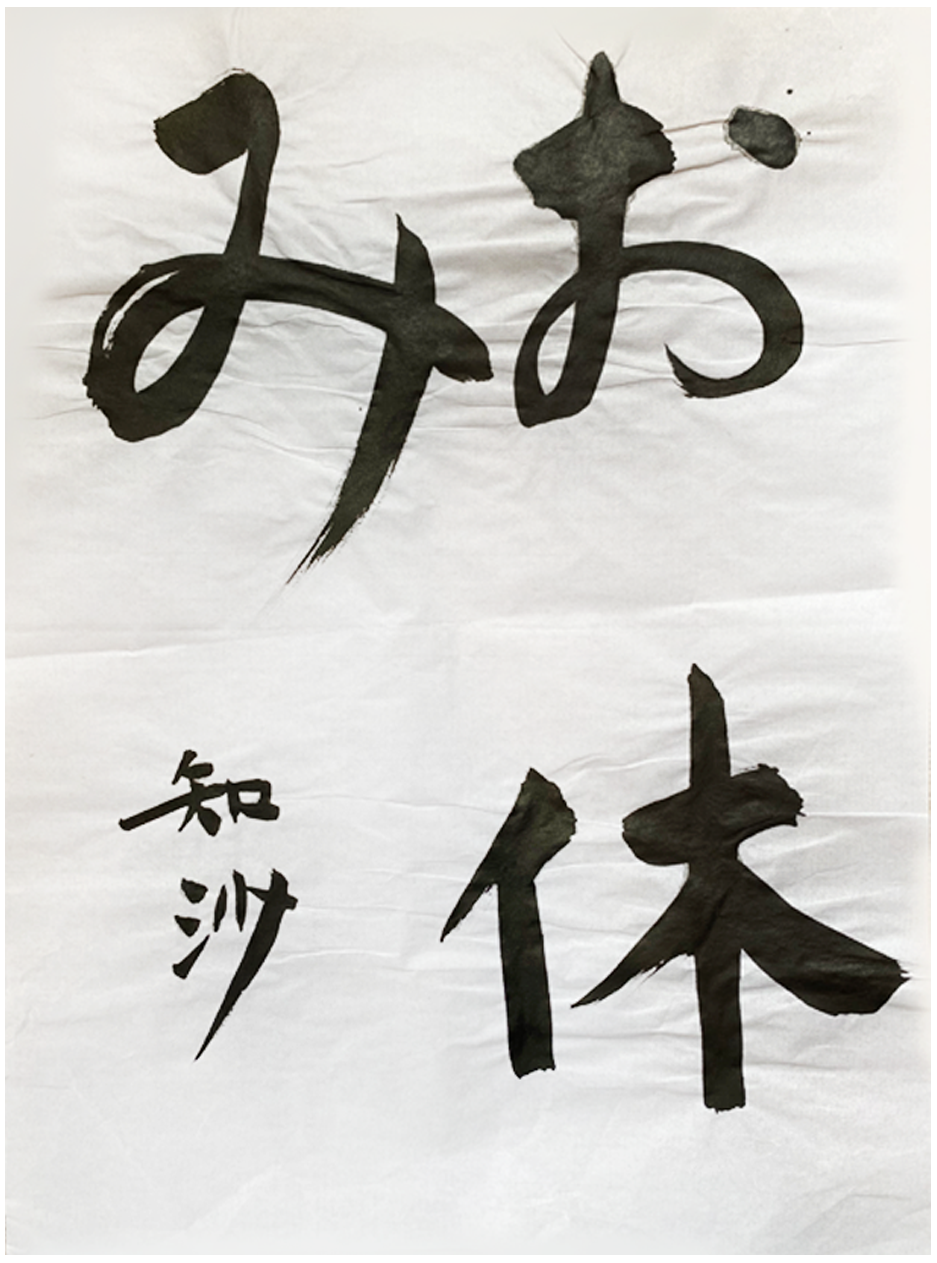 お休
み
知沙